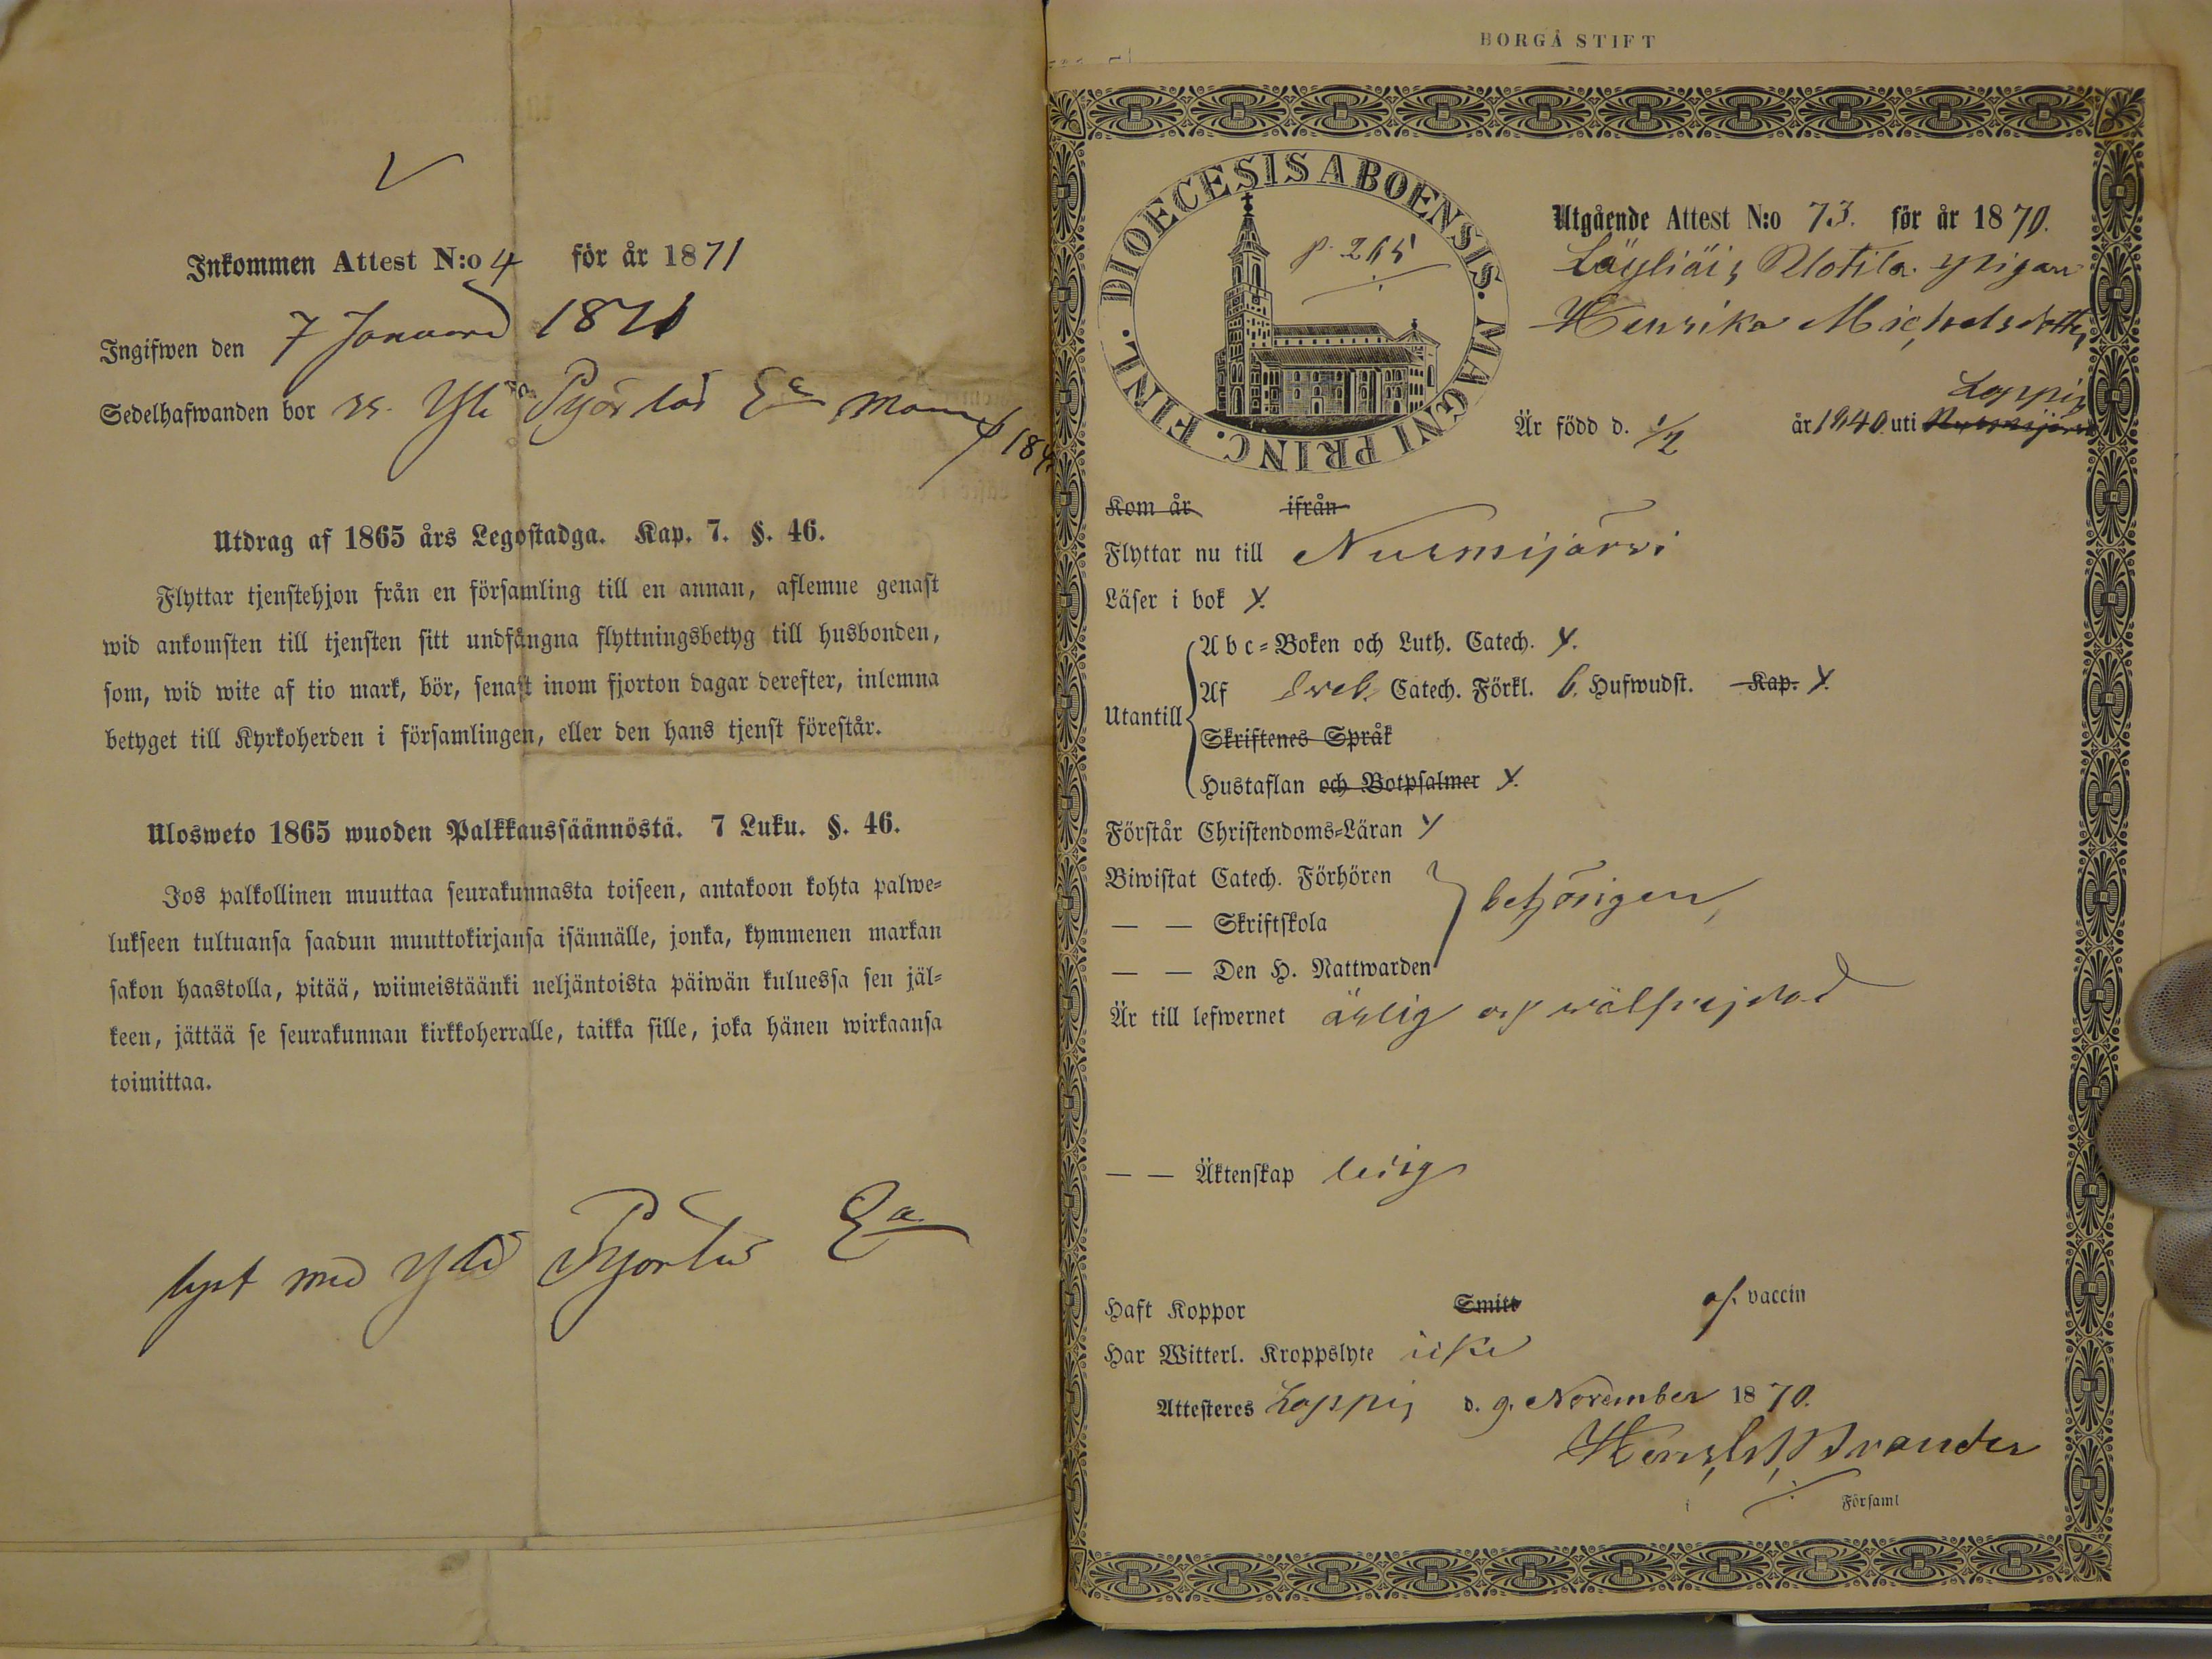 Inkommen Attest N:o 4 för år 1871
Ingifwen den 7 Januari 1871
Sedelhafwanden bor Yli Pyörlä
Utdrag af 1865 års Legostadga. Kap. 7. §. 46.
Flyttar tjenstehjon från en församling till en annan, aflemne genast
wid ankomsten till tjensten sitt undfångna flyttningsbetyg till husbonden,
som, wid wite af tio mark, bör, senast inom fjorton dagar derefter, inlemna
betyget till Kyrkoherden i församlingen, eller den hans tjenst förestår.
Ulosweto 1865 wuoden Palkkaussäännöstä. 7 Luku. §. 46.
Jos palkollinen muuttaa seurakunnasta toiseen, antakoon kohta palwe-
lukseen tultuansa saadun muuttokirjansa isännälle, jonka, kymmenen markan
sakon haastolla, pitää, wiimeistäänki neljäntoista päiwän kuluessa sen jäl-
keen, jättää se seurakunnan kirkkoherralle, taikka sille, joka hänen wirkaansa
toimittaa.
lyst med Yli Pyörlä
BORGÅ STIFT
DIOECESIS ABOENSIS. MAGNI PRINC. FINL.
p. 265
Utgående Attest N:o 73. för år 1870.
Läyliäis Uotila. pigan
Henrika Michelsdotter
Loppis
Är född d. 1/2 år 1840. uti Nurmijärvi
Kom år ifrån
Flyttar nu till Nurmijärvi
Läser i bok
Utantill
Abc-Boken och Luth. Catech.
Af Sveb. Catech. Förkl. 6. Hufwudst. Kap.
Skriftenes Språk
Hustaflan och Botpsalmer
Förstår Christendoms-Läran
Biwistat Catech. Förhören
— — Skriftskola behörigen,
— — Den H. Nattwarden
Är till lefwernet ärlig och wälfrejdad
— — Äktenskap ledig
Haft Koppor Smitt af. vaccin
Har Witterl. Kroppslyte icke
Attesteres Loppis d. 9. November 1870.
Brander
i Församl